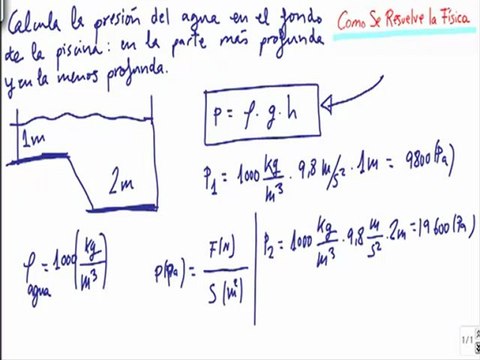 Calcula la presión del agua en el fondo
de la piscina: en la parte más profunda
y en la menos profunda.
Como Se Resuelve la Física
P = ρ · g · h
1m
2m
P₁ = 1000 kg/m³ · 9,8 m/s² · 1m = 9800 (Pa)
ρ agua = 1000 (kg/m³)
P(Pa) = F(N) / S(m²)
P₂ = 1000 kg/m³ · 9,8 m/s² · 2m = 19600 (Pa)
1/1